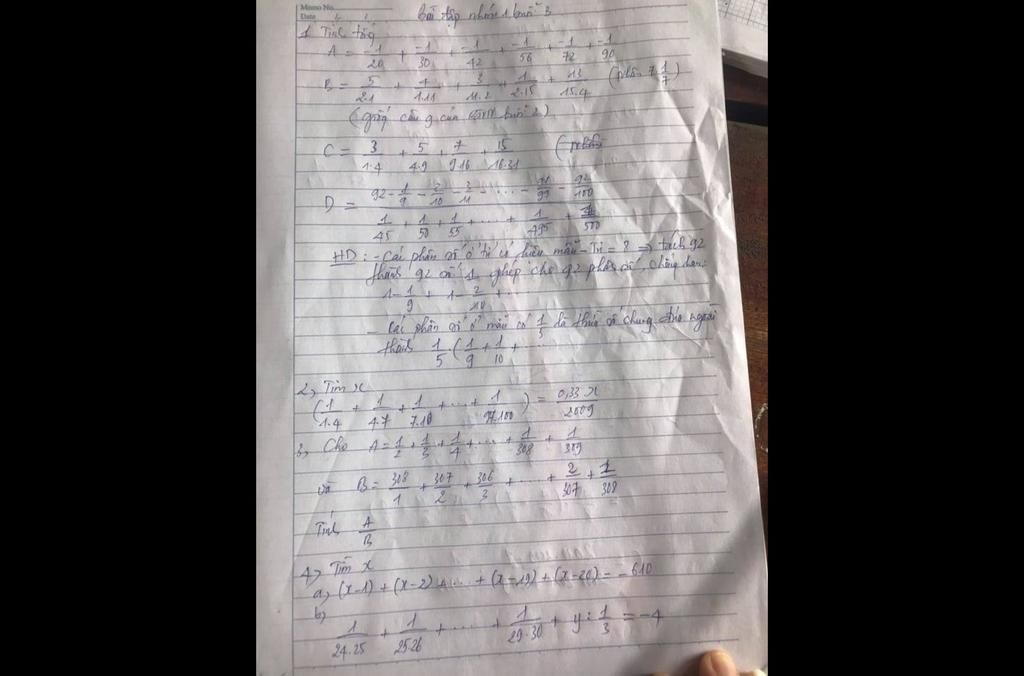 Memo No.
Date
Bài tập nhóm 1 buổi 3
1. Tính tổng
A = -1/20 + -1/30 + -1/42 + -1/56 + -1/72 + -1/90
B = 5/2.1 + 4/1.11 + 3/11.2 + 1/2.15 + 13/15.4 (phần 7 1/7)
(giống câu g của buổi 2)
C = 3/1.4 + 5/4.9 + 7/9.16 + 15/16.31
D = (92 - 1/9 - 2/10 - 3/11 - .... - 91/99 - 92/100) / (1/45 + 1/50 + 1/55 + .... + 1/495 + 1/500)
HD: - Các phân số ở tử có hiệu mẫu - Tử = 8 => tách 92
thành 92 số 1, ghép cho 92 phân số, chẳng hạn:
1 - 1/9 + 1 - 2/10 + ....
- Các phân số ở mẫu có 1/5 là thừa số chung đưa ngoài
thành 1/5.(1/9 + 1/10 + ....
2, Tìm x
(1/1.4 + 1/4.7 + 1/7.10 + .... + 1/97.100) = 0,33x/2009
3, Cho A = 1/2 + 1/3 + 1/4 + .... + 1/308 + 1/309
và B = 308/1 + 307/2 + 306/3 + .... + 2/307 + 1/308
Tính A/B
4, Tìm x
a, (x-1) + (x-2) + .... + (x-19) + (x-20) = -610
b,
1/24.25 + 1/25.26 + .... + 1/29.30 + y : 1/3 = -4